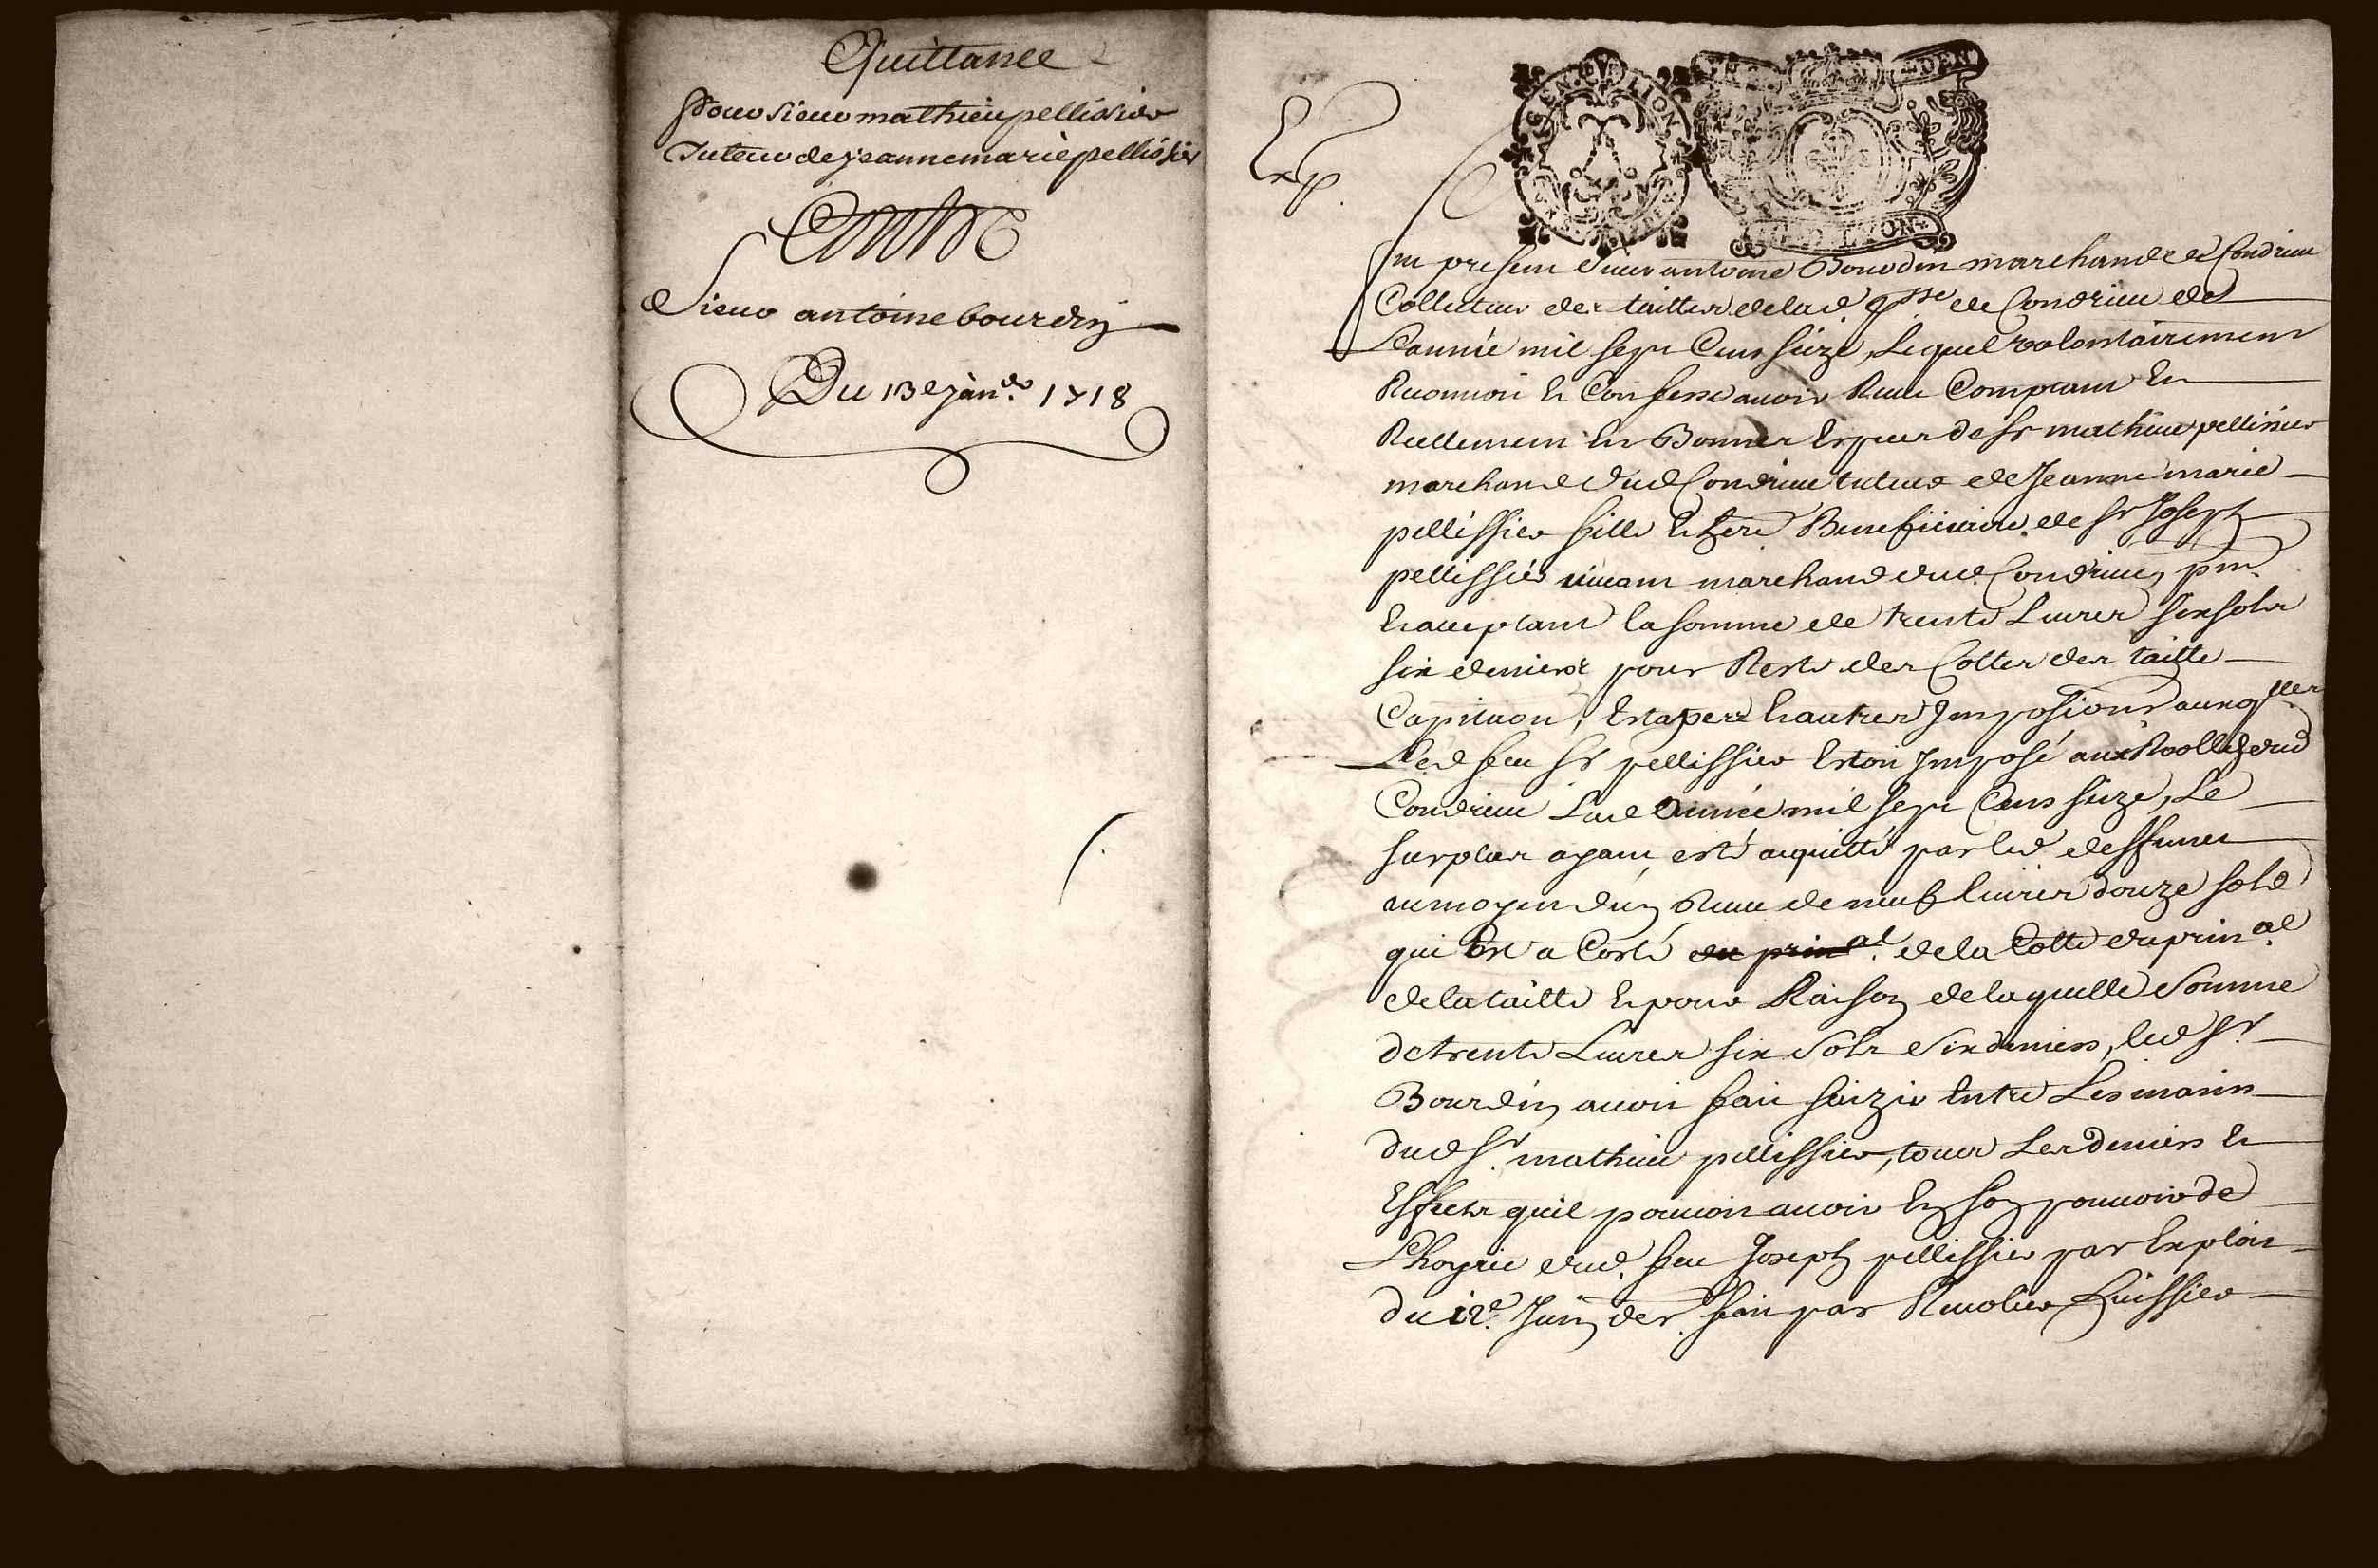 Quittance
pour sieur mathieu pellissier
Tuteur de jeanne marie pellissier
Contre
Sieur antoine bourdin
Du 13e janer 1718
Exp.
GEN DE LION
Fut present sieur antoine Bourdin marchand de Condrieu
Collecteur des tailles de lad psse de Condrieu de
Lannée mil sept Cens seize, Lequel volontairement
Reconnoit et Confesse avoir Receu Comptant et
Reellement en Bonnes Especes de sr mathieu pellissier
marchand dud Condrieu tuteur de Jeanne marie
pellissier fille et here Beneficiaire de sr Joseph
pellissier vivant marchand dud. Condrieu, pnt
et acceptant la somme de trente Livres six sols
six deniers pour Reste des Cottes des taille
Capitaon, Estapes et autres Impositions auxqlles
Led feu sr pellissier Estoit Imposé aux Roolles dud
Condrieu Lad année mil sept Cens seize, Le
surplus ayant esté acquitté par led deffunct
au moyen dun Receu de neuf livres douze sols
qui Est a Costé du prinal. de la Cotte du prinal
de la taille et pour Raison de laquelle somme
de trente Livres six sols six deniers, led sr.
Bourdin avoit fait saizir Entre Les mains
dud sr. mathieu pellissier, tous Les deniers et
Effects quil pouvoit avoir En son pouvoir de
Lhoyrie dud. feu Joseph pellissier par Exploit
du 12e. Juin der. fait par Huissier